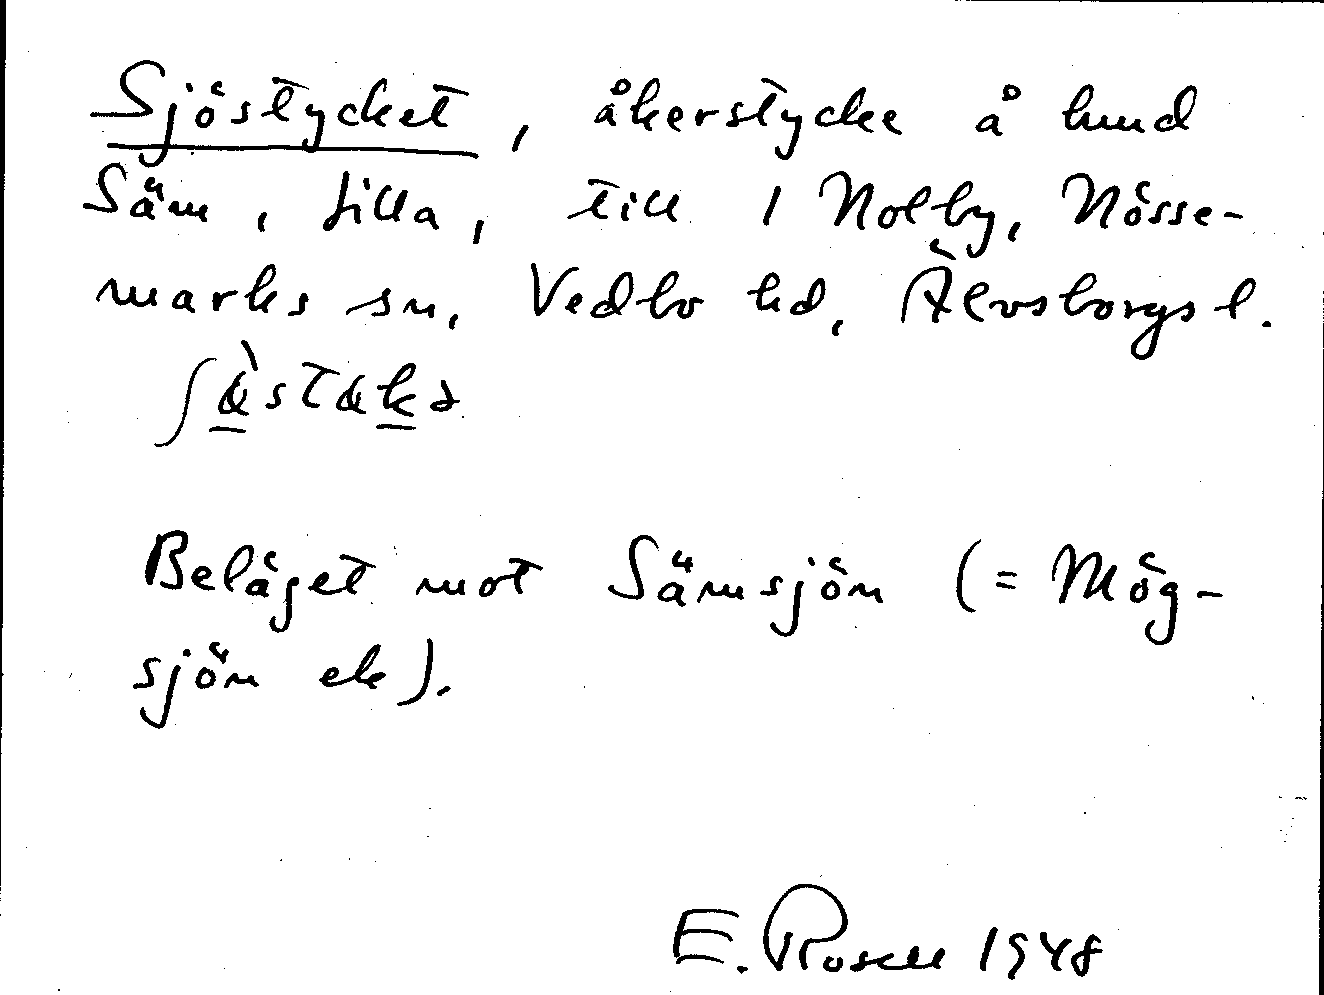 Sjöstycket, åkerstycke å hmd
Säm, Lilla, till 1 Nolby, Nösse-
marks sn, Vedbo hd, Älvsborgs l.
Beläget mot Sämsjön (= Mög-
sjön ek).
E. Rosell 1948